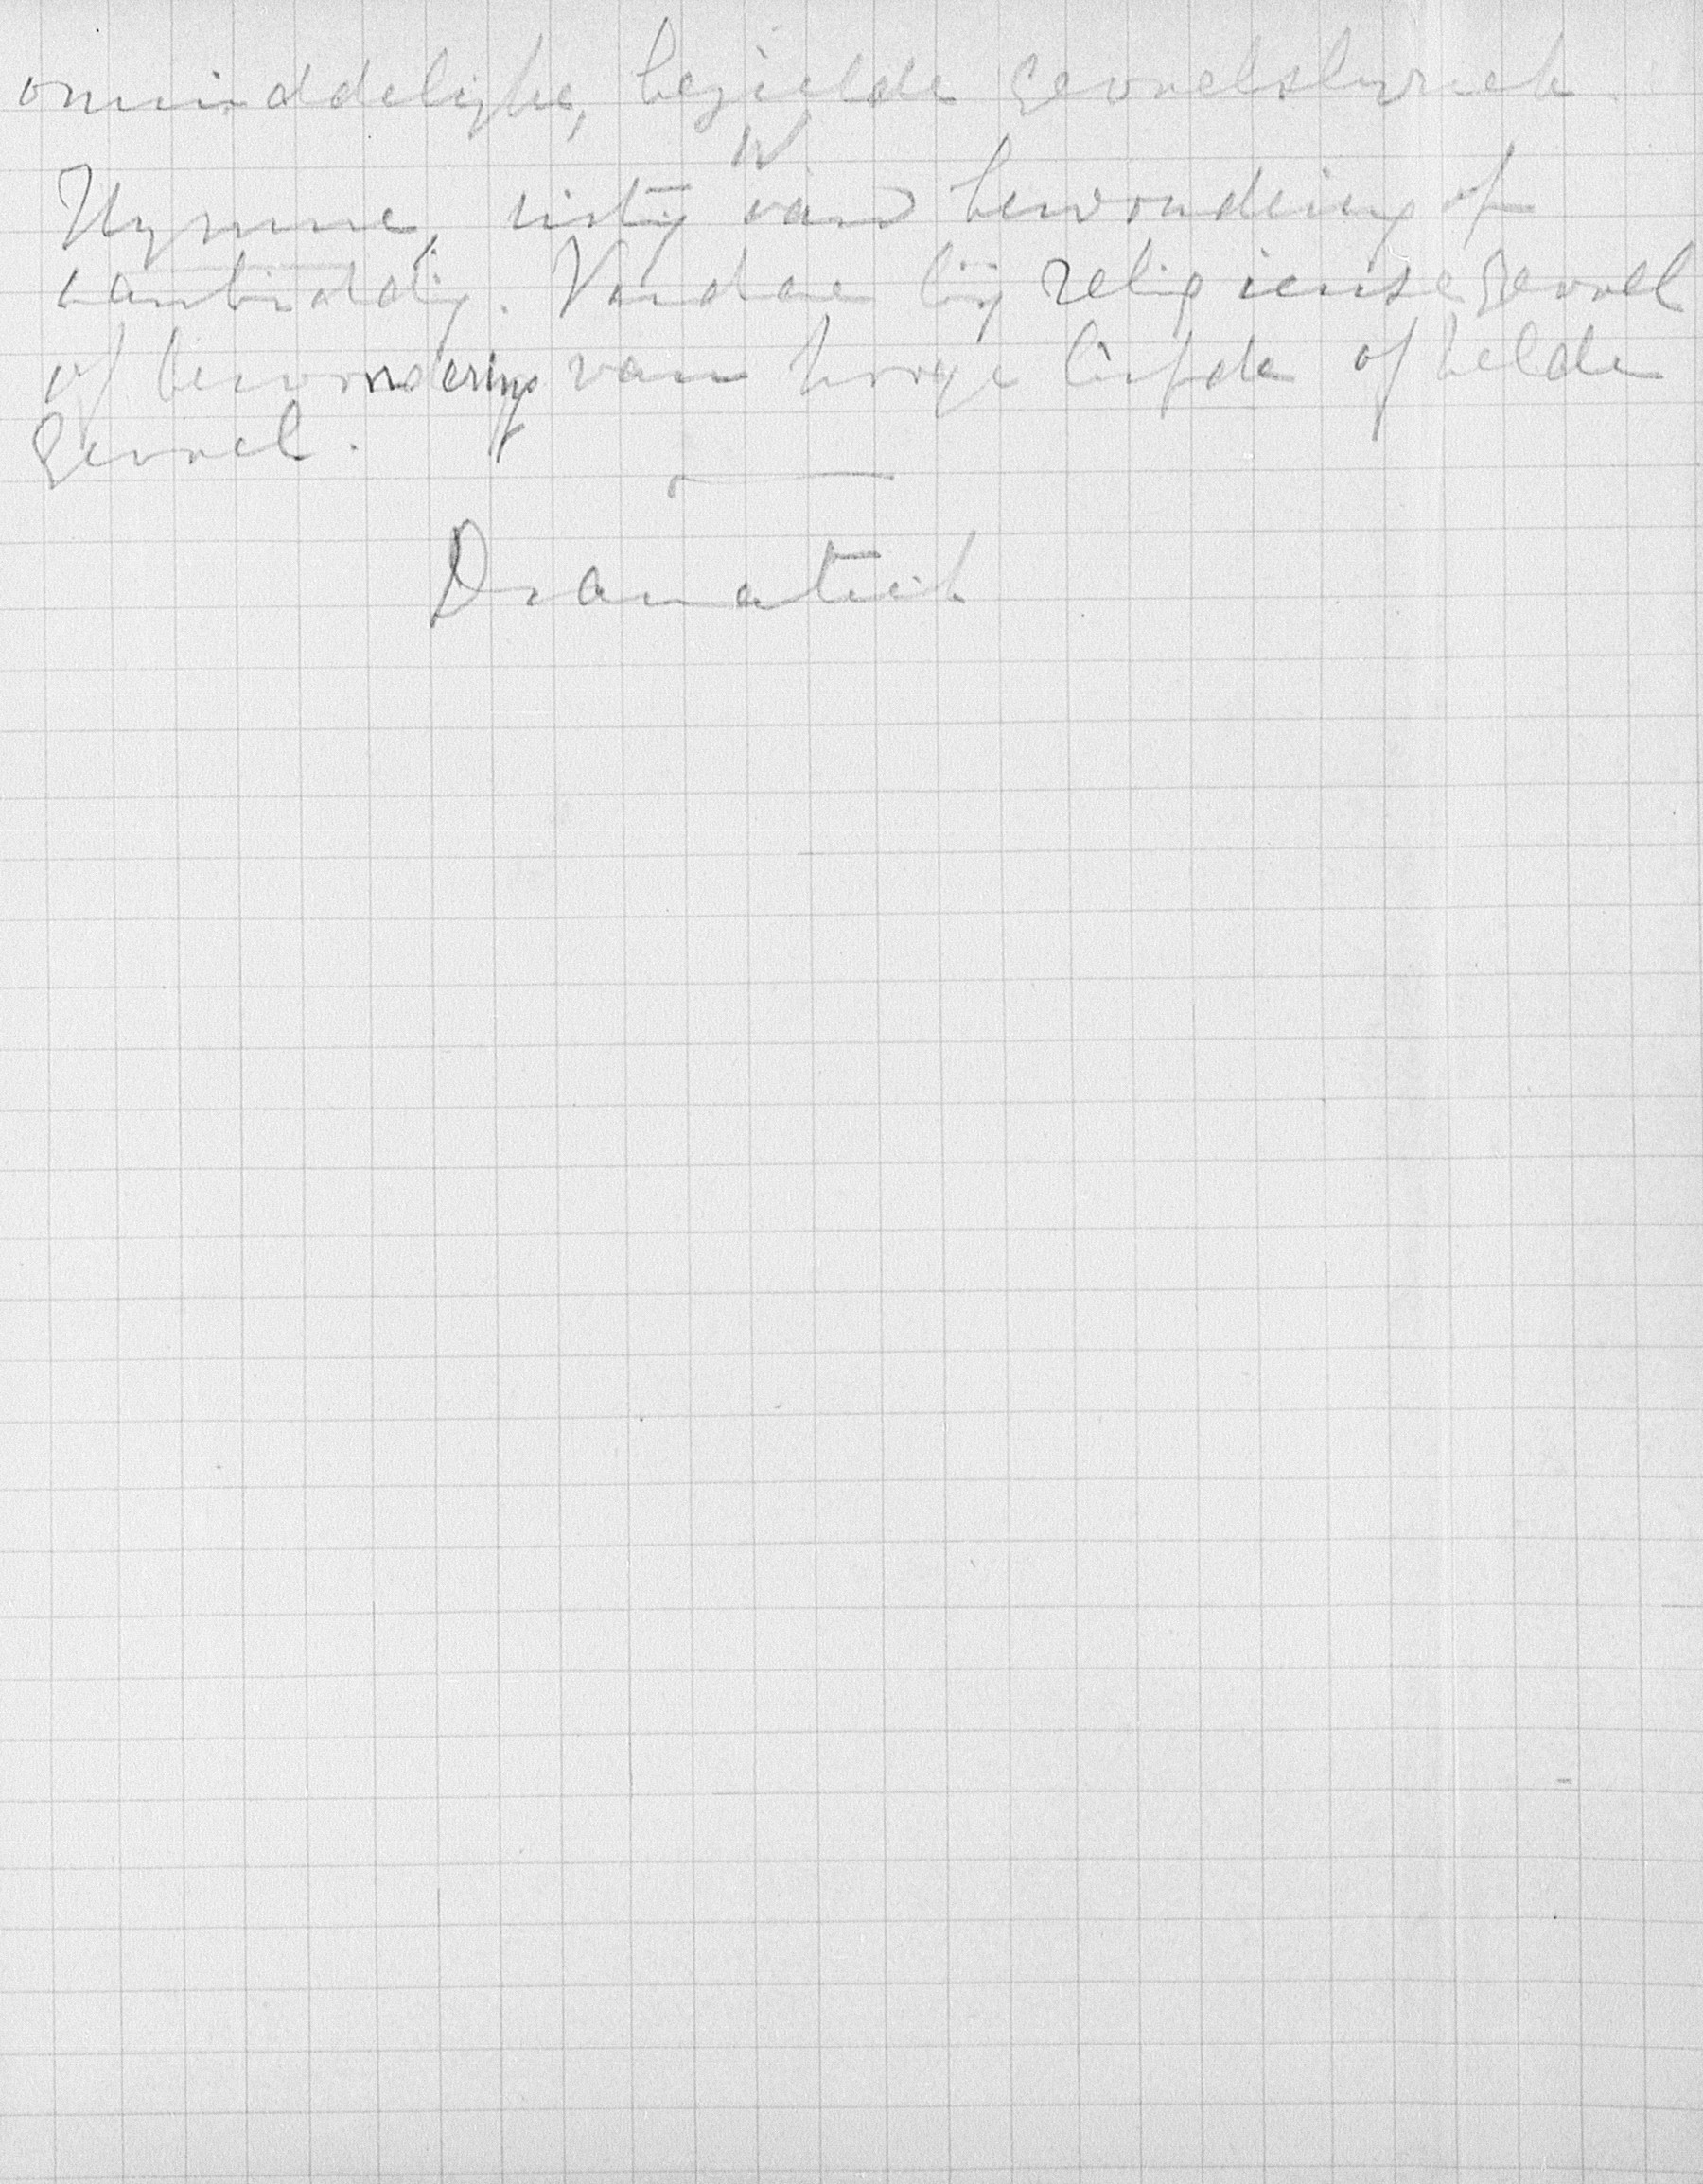 onmiddelijke, bezielde gevoelslyriek.
Hymne, uiting van bewondering of
aanbidding. Vandaar bij religieuse gevoel
of bewondering van hooge liefde of helde
gevoel.
Dramatiek